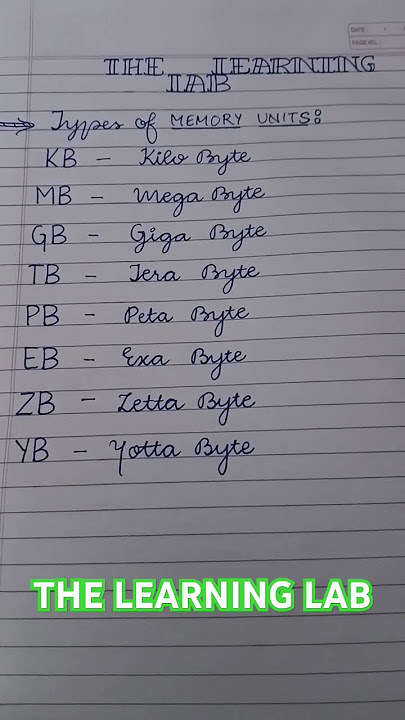 DATE: / /
PAGE NO.:
THE LEARNING
LAB
⇒ Types of MEMORY UNITS:
KB - Kilo Byte
MB - Mega Byte
GB - Giga Byte
TB - Tera Byte
PB - Peta Byte
EB - Exa Byte
ZB - Zetta Byte
YB - Yotta Byte
THE LEARNING LAB